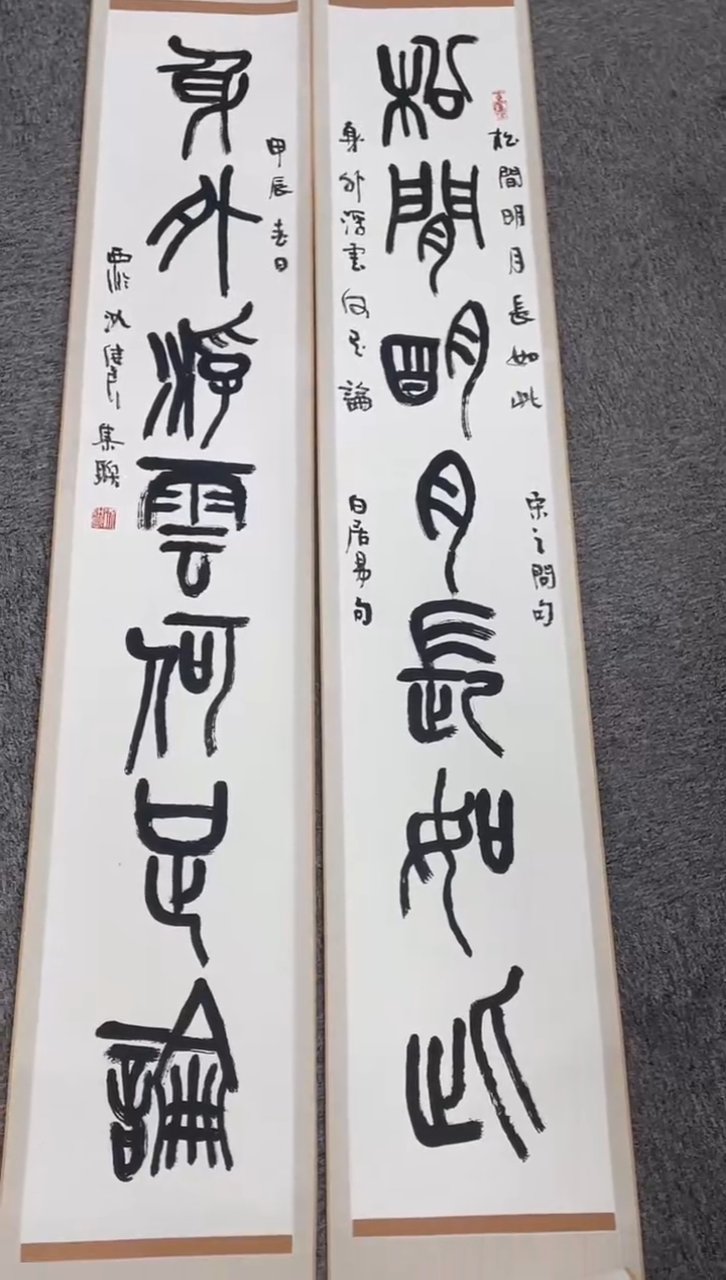 松間明月長如此
宋之問句
松間明月長如此
身外浮雲何足論
白居易句
甲辰春日
身外浮雲何足論
西泠
集聯